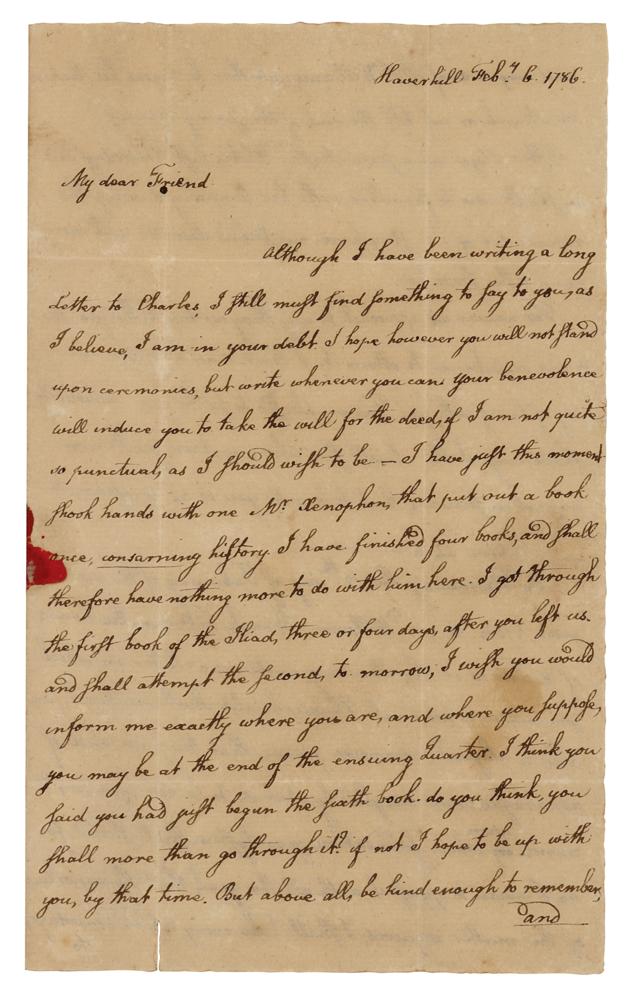 Haverhill Feb.y 6. 1786.
My dear Friend
Although I have been writing a long
Letter to Charles, I still must find something to say to you, as
I believe, I am in your debt. I hope however you will not stand
upon ceremonies, but write whenever you can. your benevolence
will induce you to take the will for the deed, if I am not quite
so punctual, as I should wish to be — I have just this moment
shook hands with one Mr. Xenophon, that put out a book
once, consarning history. I have finished four books, and shall
therefore have nothing more to do with him here. I got through
the first book of the Iliad, three or four days, after you left us.
and shall attempt the second, to morrow, I wish you would
inform me exactly where you are, and where you suppose,
you may be at the end of the ensuing Quarter. I think you
said you had just begun the sixth book. do you think, you
shall more than go through it? if not I hope to be up with
you, by that time. But above all, be kind enough to remember,
and